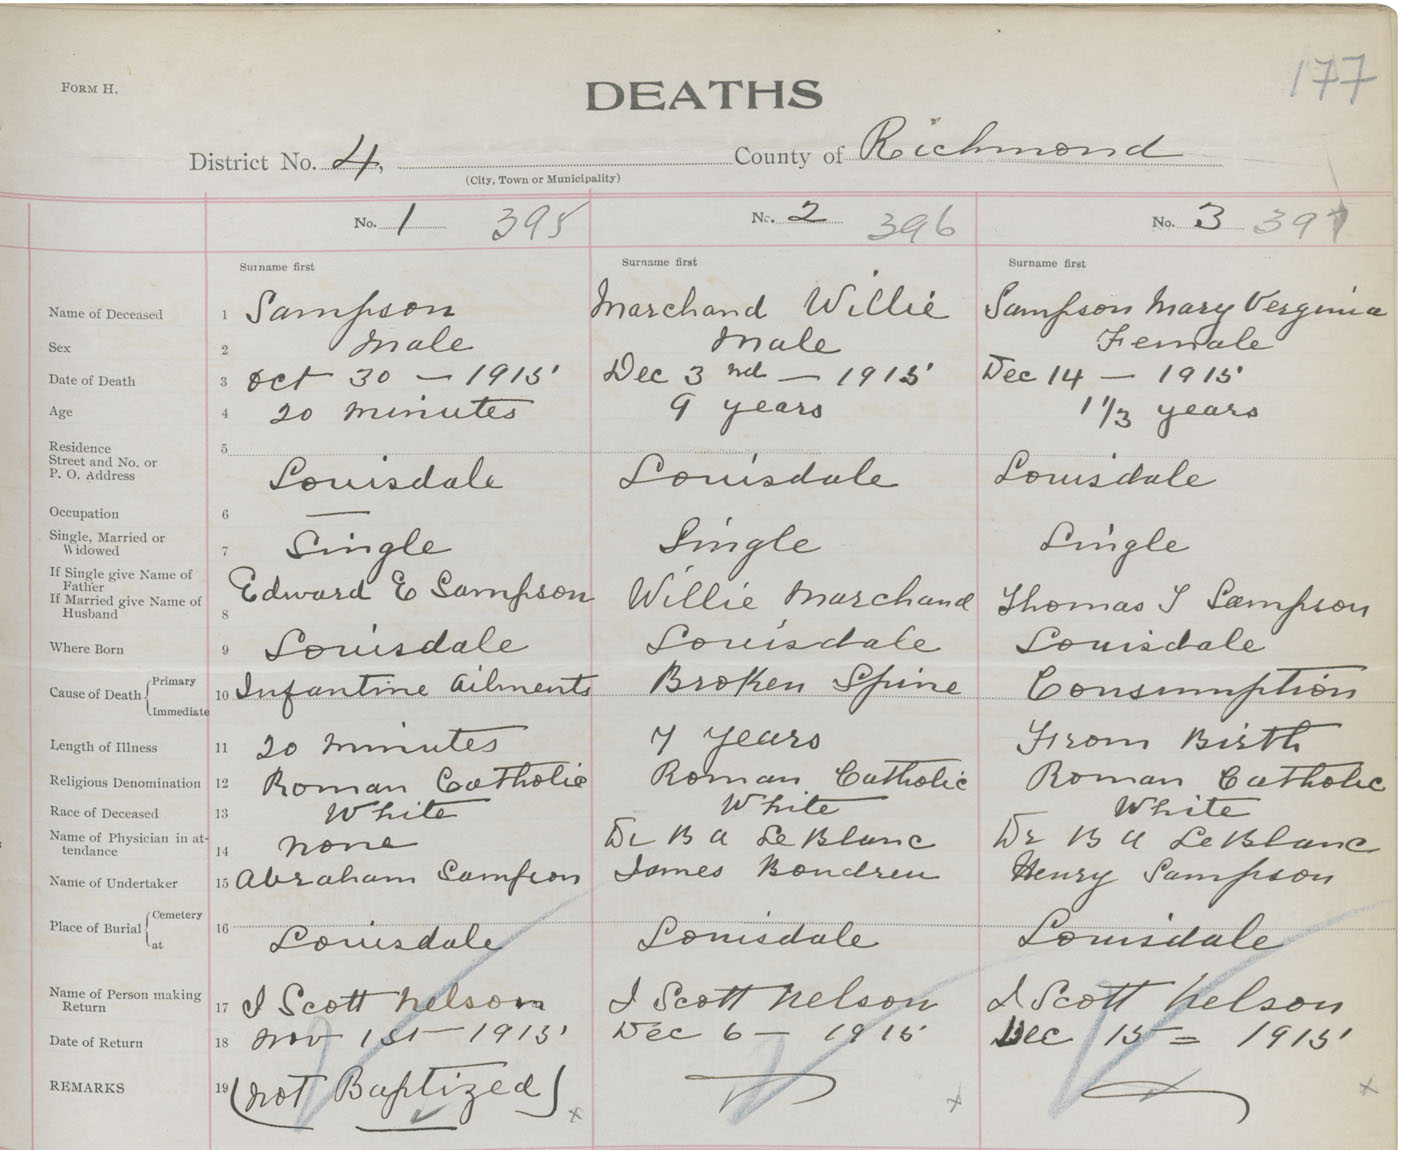 177
FORM H.
DEATHS
District No. 4, County of Richmond
(City, Town or Municipality)
No. 1 395 No. 2 396 No. 3 397
Surname first Surname first Surname first
Name of Deceased 1 Sampson Marchand Willie Sampson Mary Verginia
Sex 2 Male Male Female
Date of Death 3 Oct 30 — 1915 Dec 3nd — 1915 Dec 14 — 1915
Age 4 20 minutes 9 years 1 1/3 years
Residence 5
Street and No. or
P. O. Address Louisdale Louisdale Louisdale
Occupation 6 —
Single, Married or
Widowed 7 Single Single Single
If Single give Name of
Father
If Married give Name of
Husband 8 Edward E Sampson Willie Marchand Thomas J Sampson
Where Born 9 Louisdale Louisdale Louisdale
Cause of Death Primary
Immediate 10 Infantine Ailments Broken Spine Consumption
Length of Illness 11 20 minutes 7 years From Birth
Religious Denomination 12 Roman Catholic Roman Catholic Roman Catholic
Race of Deceased 13 White White White
Name of Physician in at-
tendance 14 none Dr B A LeBlanc Dr B A LeBlanc
Name of Undertaker 15 Abraham Sampson James Boudreu Henry Sampson
Place of Burial Cemetery
at 16 Louisdale Louisdale Louisdale
Name of Person making
Return 17 J Scott Nelson J Scott Nelson J Scott Nelson
Date of Return 18 Nov 1st — 1915 Dec 6 — 1915 Dec 15 = 1915
REMARKS 19 (not Baptized) x x x